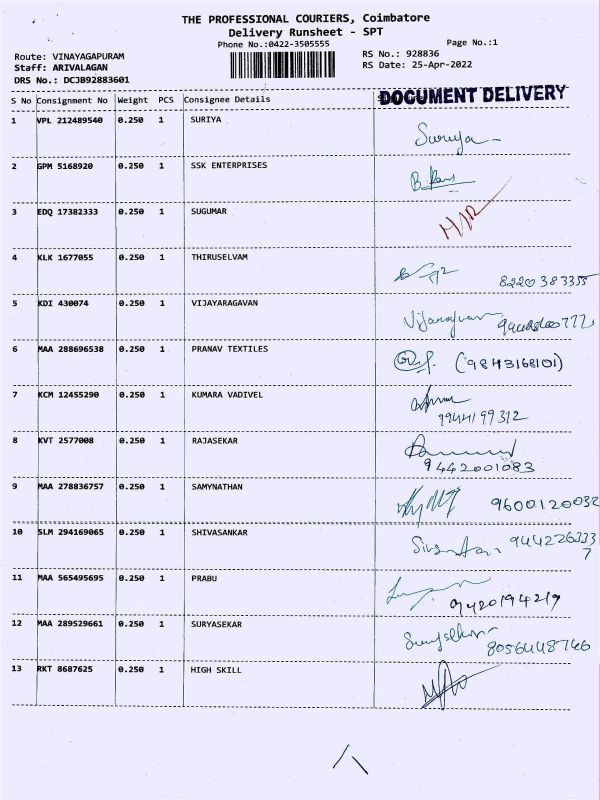 THE PROFESSIONAL COURIERS, Coimbatore
Delivery Runsheet - SPT
Phone No.:0422-3505555
Page No.:1
Route: VINAYAGAPURAM
RS No.: 928836
Staff: ARIVALAGAN
RS Date: 25-Apr-2022
DRS No.: DCJB92883601
S No Consignment No Weight PCS Consignee Details
DOCUMENT DELIVERY
1 VPL 212489540 0.250 1 SURIYA
Suruya
2 GPM 5168920 0.250 1 SSK ENTERPRISES
3 EDQ 17382333 0.250 1 SUGUMAR
4 KLK 1677055 0.250 1 THIRUSELVAM
8220383355
5 KDI 430074 0.250 1 VIJAYARAGAVAN
6 MAA 288696538 0.250 1 PRANAV TEXTILES
(9843168101)
7 KCM 12455290 0.250 1 KUMARA VADIVEL
9944199312
8 KVT 2577008 0.250 1 RAJASEKAR
9442001083
9 MAA 278836757 0.250 1 SAMYNATHAN
9600120032
10 SLM 294169065 0.250 1 SHIVASANKAR
944226333
7
11 MAA 565495695 0.250 1 PRABU
9420194219
12 MAA 289529661 0.250 1 SURYASEKAR
8056448746
13 RKT 8687625 0.250 1 HIGH SKILL